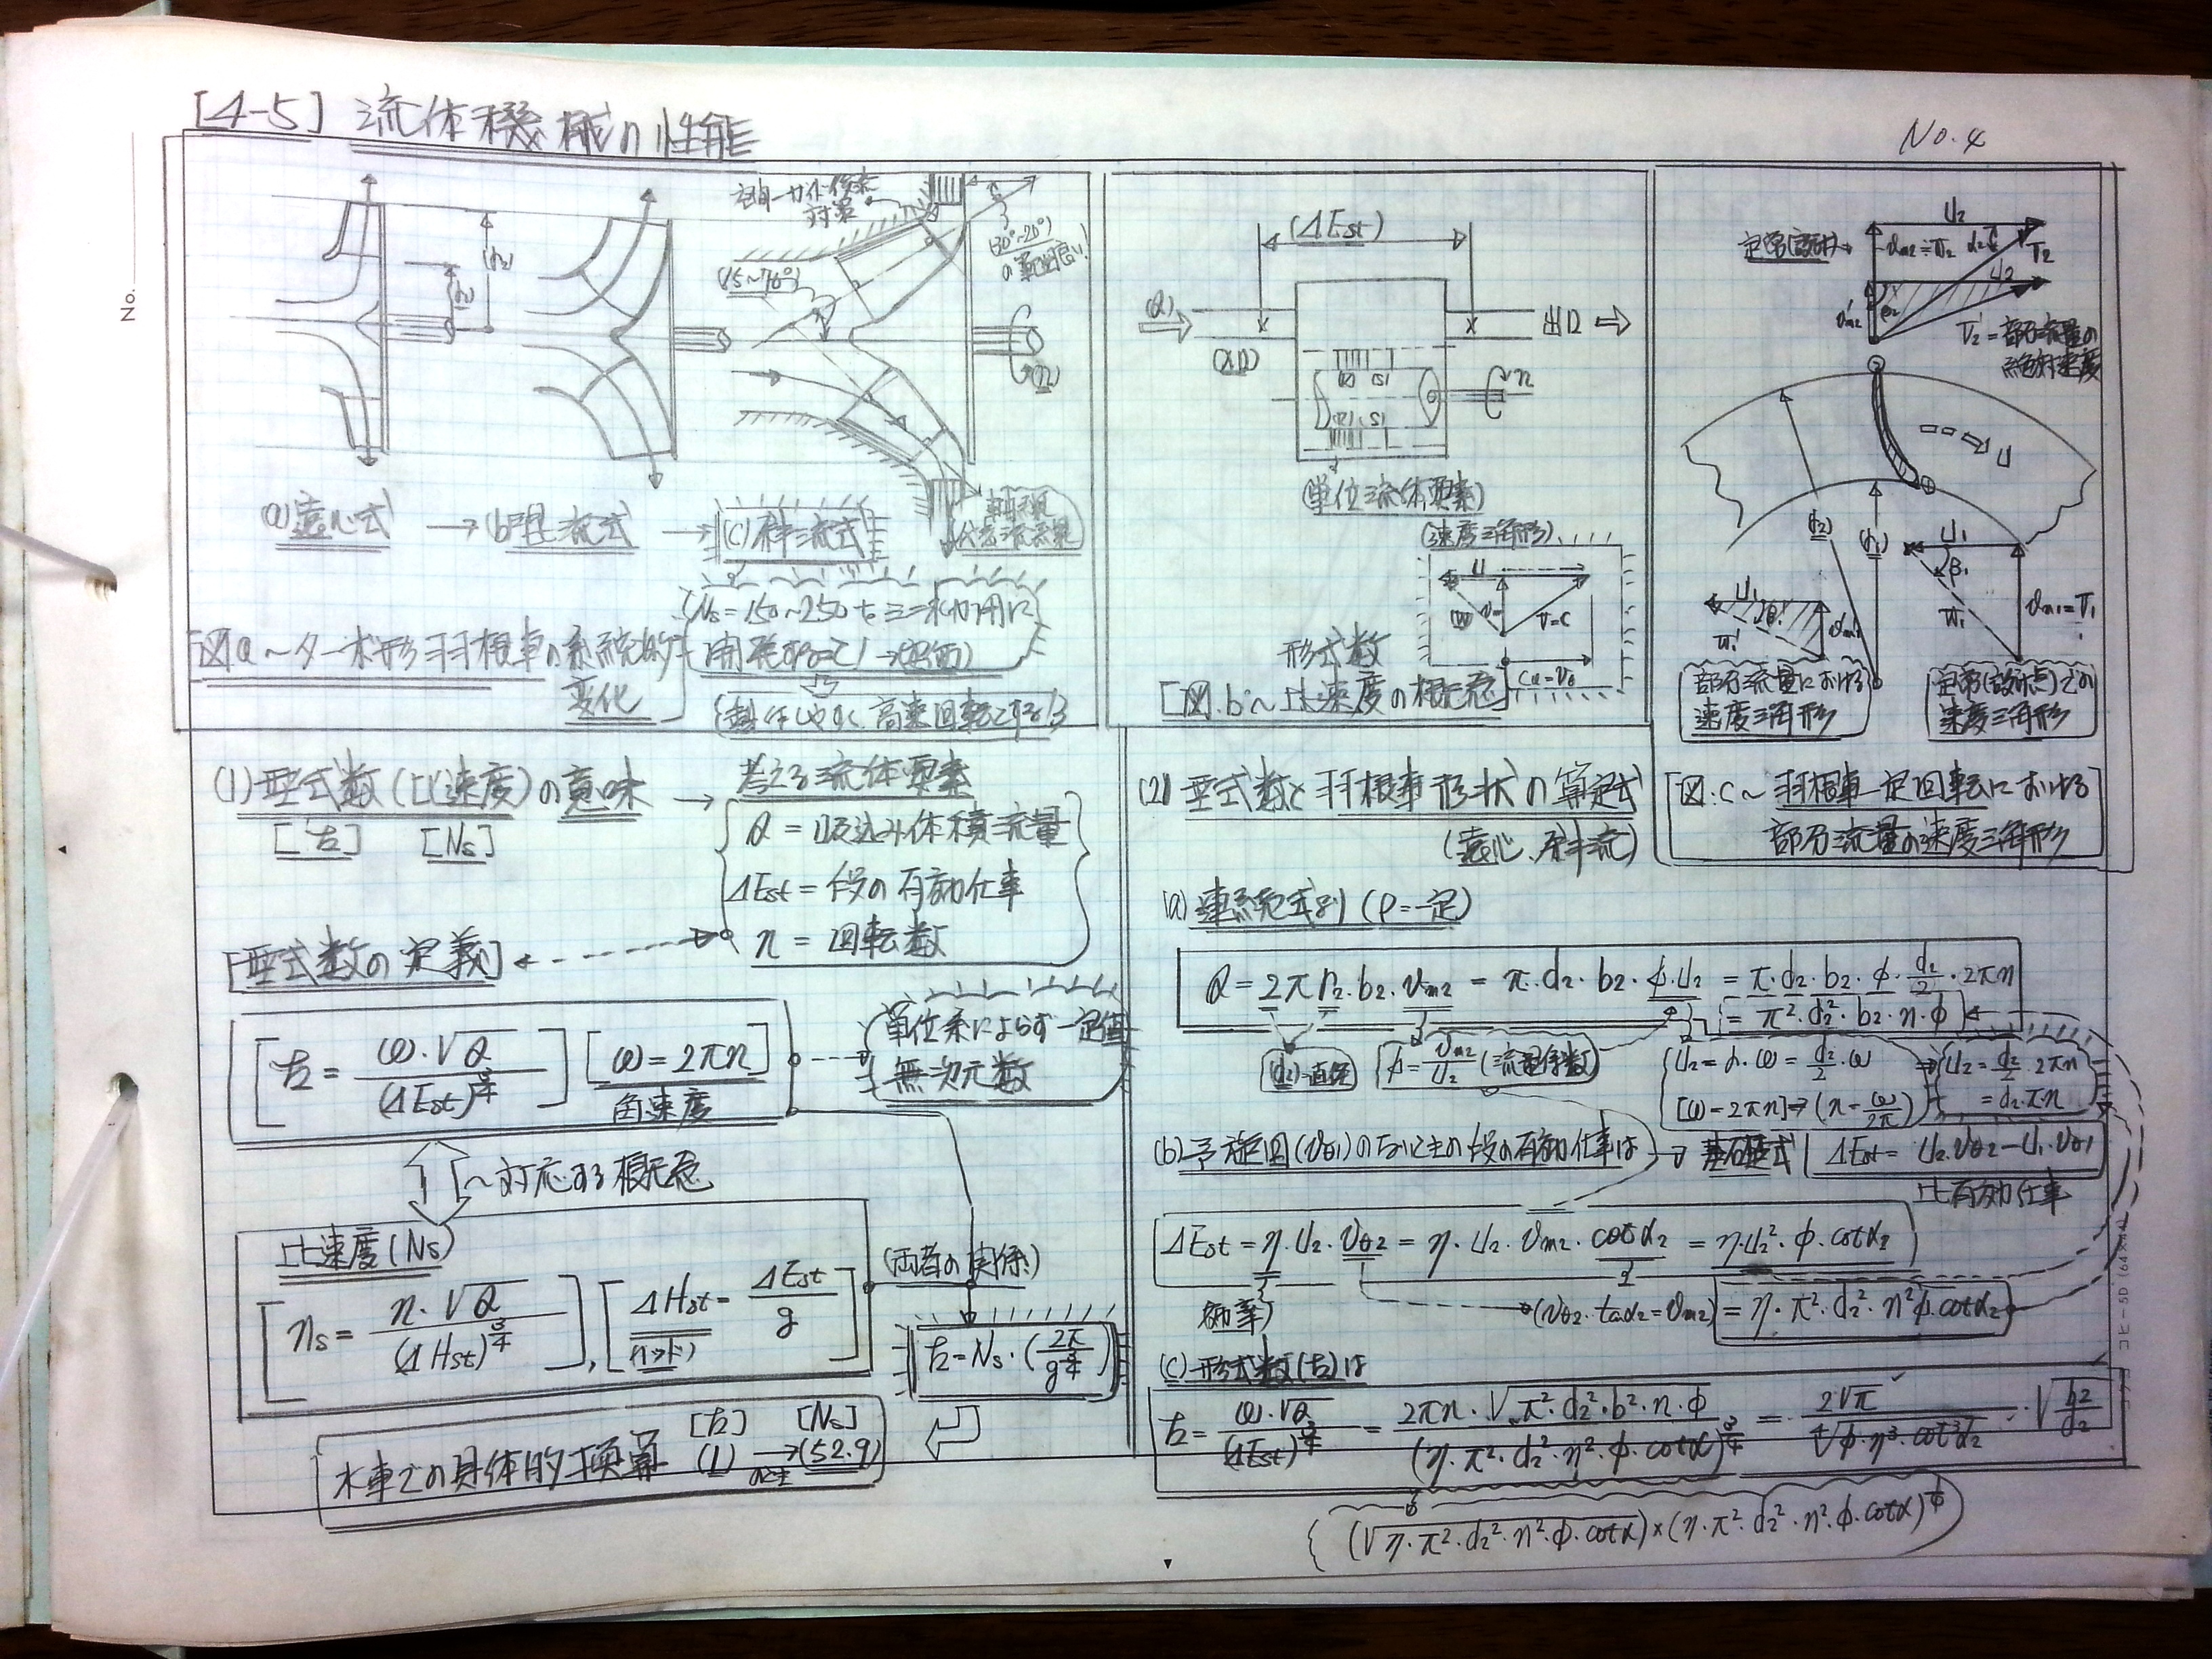 [4-5] 流体機械の性能
No.4
No.
(r2)
(15~70°)
(30°~20°)
(n)
(a)遠心式 → (b)混流式 → (c)斜流式
(Ns=150~250をミニ水力用に
図a~ターボ形羽根車の系統的
変化
高速回転とする
(ΔEst)
(Q)
(入口)
出口
n
(R) (S)
(R) (S)
(単位流体要素)
(速度三角形)
U
W
Vm
V=C
Cu=Vθ
形式数
[図.b~比速度の概念]
U2
定常(設計)
Vm2
V2
U2
V'm2
β2
V2'=部分流量の
絶対速度
U
(r2)
(r1)
U1
β1
W1
Vm1=V1
U1
W1'
部分流量における
速度三角形
定常(設計点)での
速度三角形
[図.c~羽根車一定回転における
部分流量の速度三角形]
(1)型式数(比速度)の意味 → 考える流体要素
[右] [Ns]
Q=吸込み体積流量
ΔEst=段の有効仕事
n=回転数
[型式数の定義]
[右= ω・√Q / (ΔEst)^3/4] [ω=2πn]
角速度
単位系によらず一定値
無次元数
~対応する概念
比速度(Ns)
[ns= n・√Q / (ΔHst)^3/4], [ΔHst= ΔEst / g]
(両者の関係)
右=Ns・(2π / g^3/4)
[右] [Ns]
水車での具体的換算 (1) → (52.9)
(2) 型式数と羽根車形状の算定式
(遠心、斜流)
(a) 連続式より (ρ=一定)
Q=2πr2・b2・Vm2 = π・d2・b2・φ・U2 = π・d2・b2・φ・d2/2・2πn
=π²・d2²・b2・n・φ
(d2)直径
φ=Vm2/U2 (流量係数)
U2=r・ω=d2/2・ω
[ω=2πn]⇒(n=ω/2π)
U2=d2/2・2πn
=d2・π・n
(b) 予旋回(Vθ1)のないときの段の有効仕事は
基礎式 ΔEst=U2・Vθ2-U1・Vθ1
比有効仕事
ΔEst=η・U2・Vθ2=η・U2・Vm2・cotα2=η・U2²・φ・cotα2
効率
(Vθ2・tanα2=Vm2)=η・π²・d2²・n²φ・cotα2
(c)形式数(右)は
右= ω・√Q / (ΔEst)^3/4 = 2πn・√π²・d2²・b²・n・φ / (η・π²・d2²・n²・φ・cotα)^3/4 = 2√π / ⁴√φ・η³・cot³α2 ・√b2/d2
(√η・π²・d2²・n²・φ・cotα)×(η・π²・d2²・n²・φ・cotα)^1/4